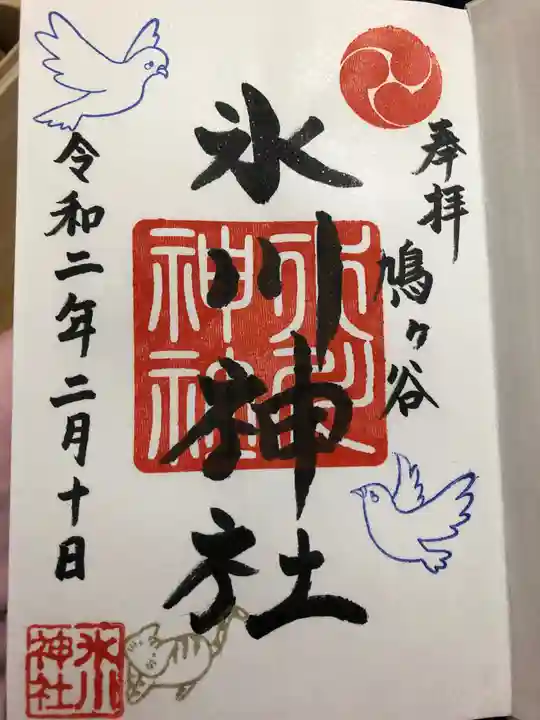 奉拝
鳩ヶ谷
氷川神社
令和二年二月十日
氷川
神社
氷川
神社